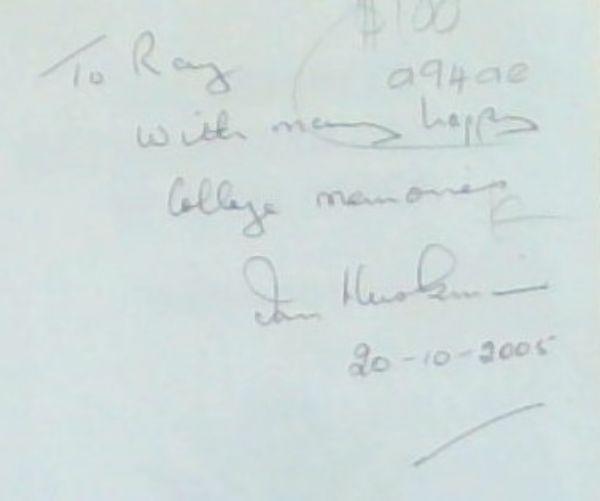 $100
To Ray
a94ae
with many happy
College memories
Ian
20-10-2005